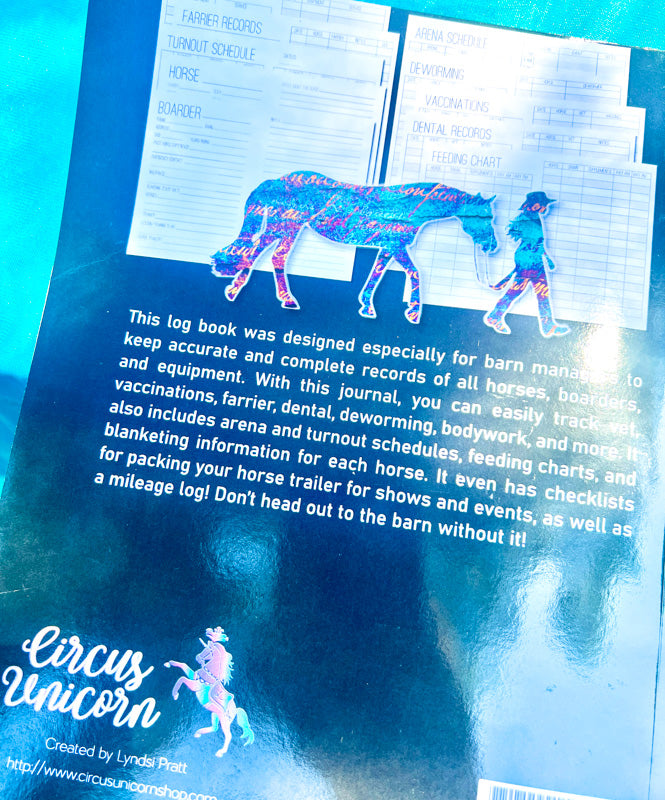 FARRIER RECORDS
TURNOUT SCHEDULE
HORSE
BOARDER
ARENA SCHEDULE
DEWORMING
VACCINATIONS
DENTAL RECORDS
FEEDING CHART
This log book was designed especially for barn managers to
keep accurate and complete records of all horses, boarders,
and equipment. With this journal, you can easily track vet,
vaccinations, farrier, dental, deworming, bodywork, and more. It
also includes arena and turnout schedules, feeding charts, and
blanketing information for each horse. It even has checklists
for packing your horse trailer for shows and events, as well as
a mileage log! Don't head out to the barn without it!
Circus
Unicorn
Created by Lyndsi Pratt
http://www.circusunicornshop.com